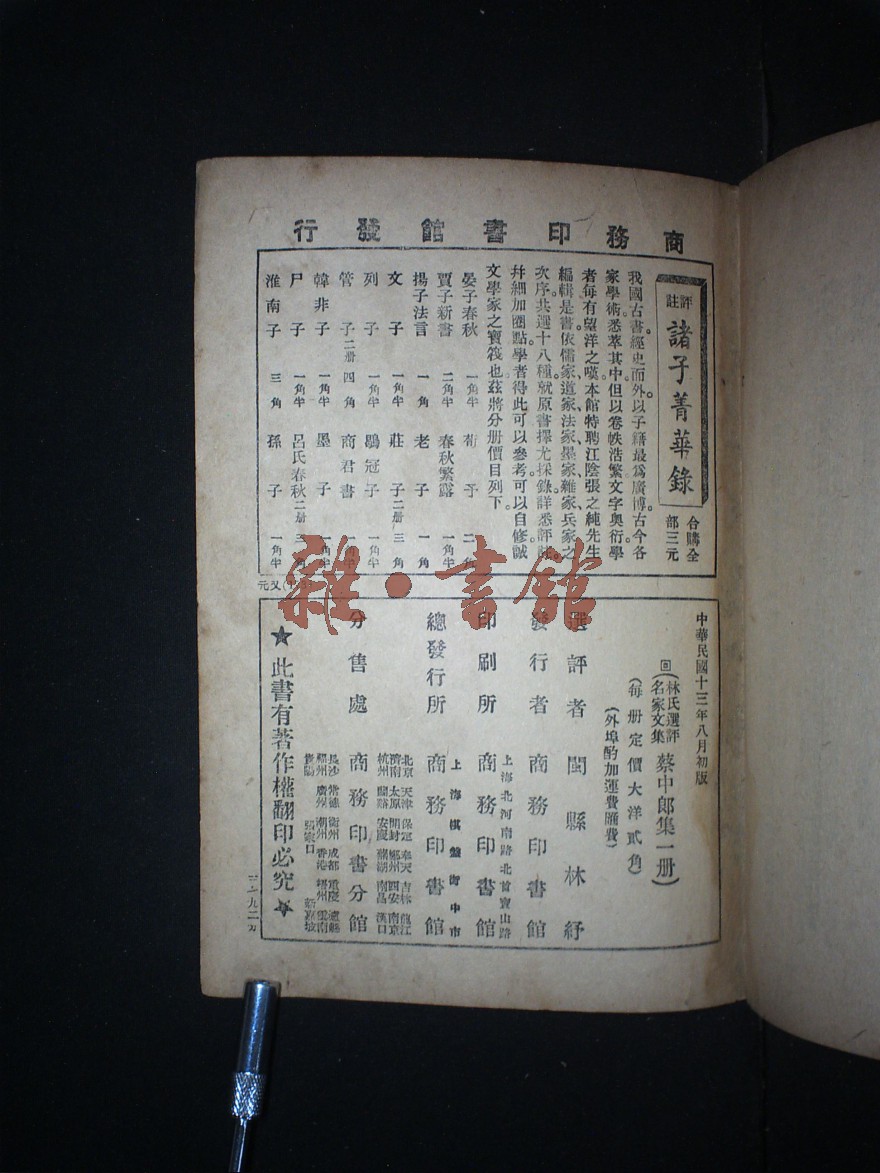 商務印書館發行
評註
諸子菁華錄
合購全
部三元
我國古書經史而外以子籍最爲廣博古今各
家學術。悉萃其中。但以卷帙浩繁文字奧衍學
者每有望洋之嘆本館特聘江陰張之純先生
編輯是書。依儒家、道家、法家、墨家、雜家、兵家之
次序共選十八種就原書擇尤採錄詳悉評註。
幷細加圈點學者得此可以參考可以自修誠
文學家之寶筏也茲將分册價目列下。
晏子春秋 一角半 荀子
賈子新書 二角半 春秋繁露 一角半
揚子法言 一角 老子 一角
文子 一角半 莊子二册 三角
列子 一角半 鶡冠子 一角半
管子二册 四角 商君書
韓非子 一角半 墨子 一角半
尸子 一角半 呂氏春秋二册 三角
淮南子 三角 孫子 一角半
雜·書館
中華民國十三年八月初版
回(林氏選評
名家文集 蔡中郎集一册)
(每册定價大洋貳角)
(外埠酌加運費匯費)
選評者 閩縣林紓
發行者 商務印書館
上海北河南路北首寶山路
印刷所 商務印書館
上海棋盤街中市
總發行所 商務印書館
北京 天津 保定 奉天 吉林 龍江
濟南 太原 開封 鄭州 西安 南京
杭州 蘭谿 安慶 蕪湖 南昌 漢口
分售處 商務印書分館
長沙 常德 衡州 成都 重慶 瀘縣
福州 廣州 潮州 香港 梧州 雲南
貴陽 張家口 新嘉坡
★此書有著作權翻印必究★